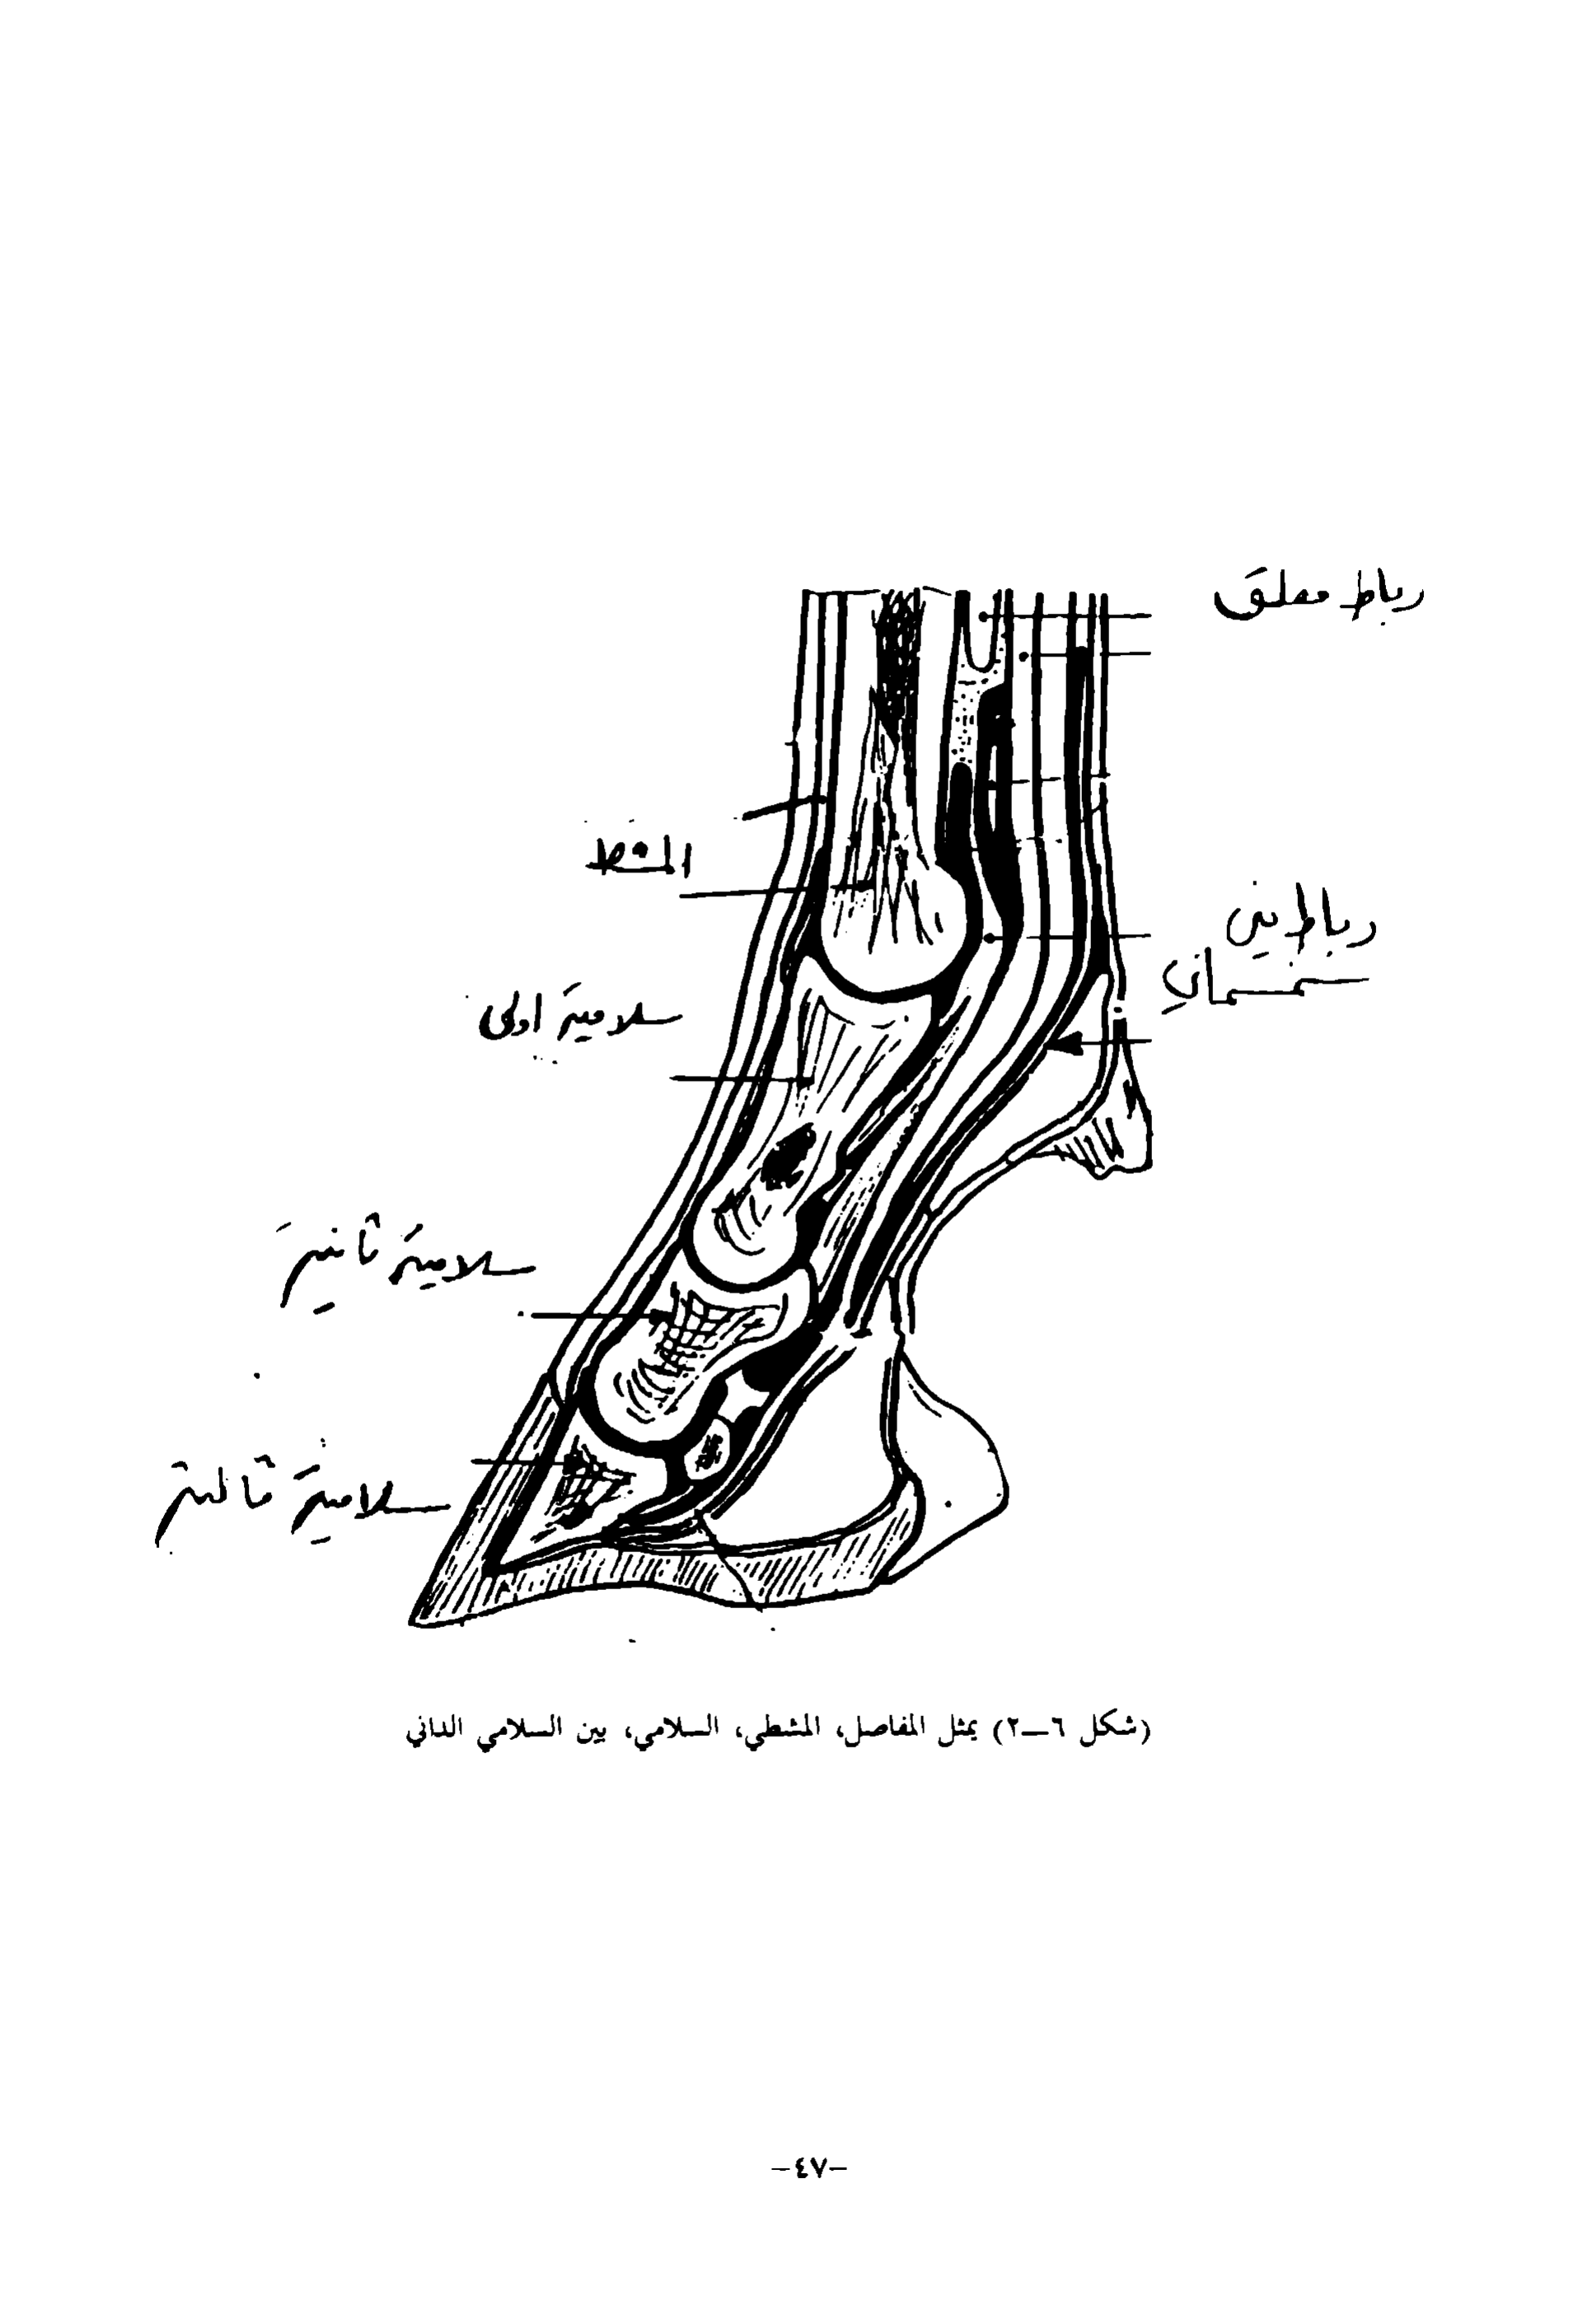 رباط معلق
المشط
رباط بين
سمسماني
سلامية اولى
سلامية ثانية
سلامية ثالثة
(شكل ٦—٢) يمثل المفاصل، المشطي، السلامي، بين السلامي الداني
—٤٧—